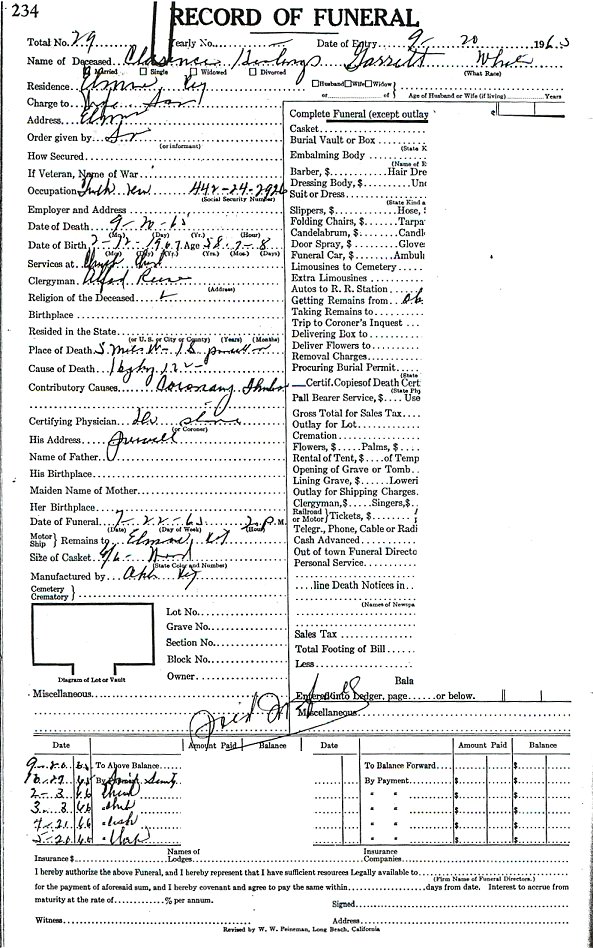 234
RECORD OF FUNERAL
Total No. 29 Yearly No. Date of Entry 9- 20 1965
Name of Deceased Clarence Garrett White
Married Single Widowed Divorced (What Race)
Residence Elmore Husband Wife Widow
or of Age of Husband or Wife (if living) Years
Charge to
Address Elmore
Order given by
(or informant)
How Secured
If Veteran, Name of War
Occupation 442-24-2926
(Social Security Number)
Employer and Address
Date of Death 9-20-65
(Mo.) (Day) (Yr.) (Hour)
Date of Birth 2-12-1907 Age 58-7-8
(Mo.) (Day) (Yr.) (Yrs.) (Mos.) (Days)
Services at
Clergyman Alfred
(Address)
Religion of the Deceased
Birthplace
Resided in the State
(or U. S. or City or County) (Years) (Months)
Place of Death 5 miles W- 1 S
Cause of Death
Contributory Causes Coronary
Certifying Physician Dr
(or Coroner)
His Address
Name of Father
His Birthplace
Maiden Name of Mother
Her Birthplace
Date of Funeral 9-22-65 2 P.M.
(Date) (Day of Week) (Hour)
Motor Ship Remains to Elmore
Size of Casket 6/6
(State Color and Number)
Manufactured by
Cemetery
Crematory
Lot No.
Grave No.
Section No.
Block No.
Owner
Diagram of Lot or Vault
Complete Funeral (except outlay $
Casket
Burial Vault or Box
(State K
Embalming Body
(Name of E
Barber, $ Hair Dre
Dressing Body, $ Und
Suit or Dress
(State Kind a
Slippers, $ Hose, $
Folding Chairs, $ Tarpa
Candelabrum, $ Candl
Door Spray, $ Glove
Funeral Car, $ Ambul
Limousines to Cemetery
Extra Limousines
Autos to R. R. Station
Getting Remains from
Taking Remains to
Trip to Coroner's Inquest
Delivering Box to
Deliver Flowers to
Removal Charges
Procuring Burial Permit
(State
Certif. Copies of Death Cert
(State Phy
Pall Bearer Service, $ Use
Gross Total for Sales Tax
Outlay for Lot
Cremation
Flowers, $ Palms, $
Rental of Tent, $ of Temp
Opening of Grave or Tomb
Lining Grave, $ Loweri
Outlay for Shipping Charges
Clergyman, $ Singers, $
Railroad or Motor Tickets, $
Telegr., Phone, Cable or Radi
Cash Advanced
Out of town Funeral Directo
Personal Service
line Death Notices in
(Names of Newspa
Sales Tax
Total Footing of Bill
Less
Bala
Entered into Ledger, page or below.
Miscellaneous Miscellaneous
Paid
Date Amount Paid Balance Date Amount Paid Balance
9-20 65 To Above Balance To Balance Forward $ $
10-27 65 By By Payment $ $
2-3 66 " " $ $
3-3 66 " " $ $
4-21 66 " " $ $
5-20 66 " " $ $
Insurance $ Names of Lodges Insurance Companies
I hereby authorize the above Funeral, and I hereby represent that I have sufficient resources Legally available to
(Firm Name of Funeral Directors.)
for the payment of aforesaid sum, and I hereby covenant and agree to pay the same within days from date. Interest to accrue from
maturity at the rate of % per annum. Signed
Witness Address
Revised by W. W. Feineman, Long Beach, California